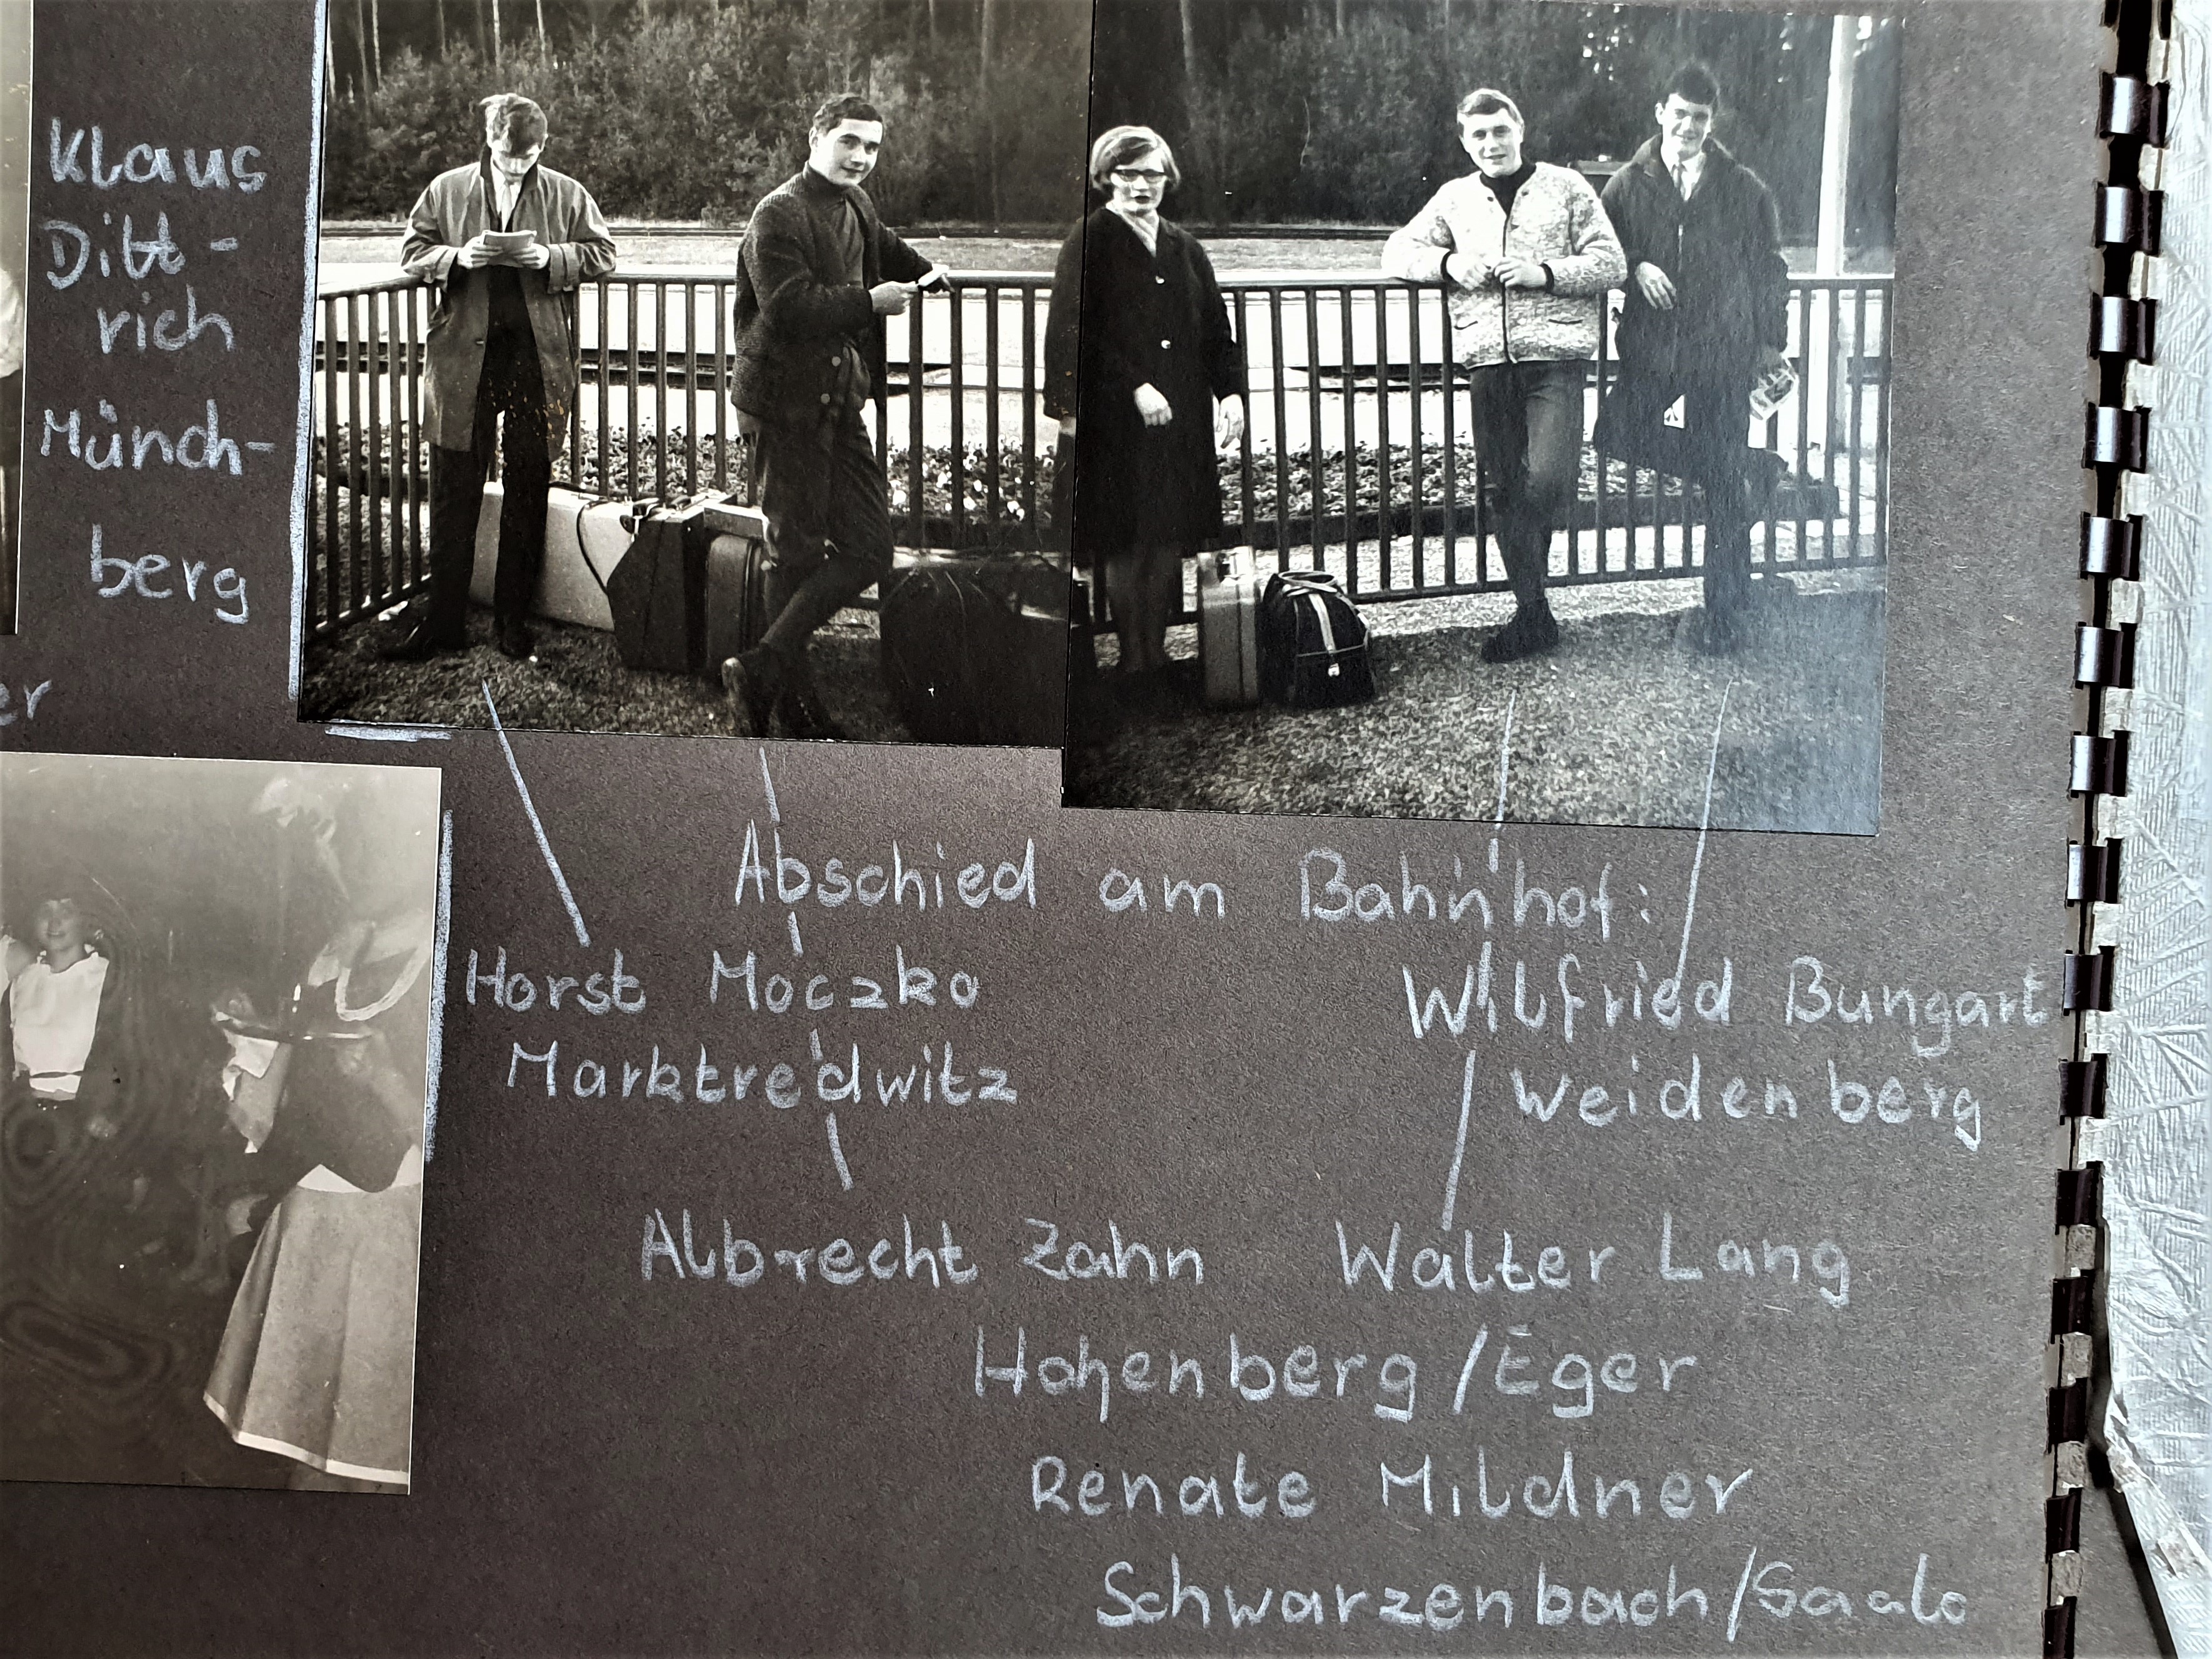 Klaus
Ditt-
rich
Münch-
berg
er
Abschied am Bahnhof:
Horst Moczko
Marktredwitz
Wilfried Bungart
Weidenberg
Albrecht Zahn
Walter Lang
Hohenberg/Eger
Renate Mildner
Schwarzenbach/Saale